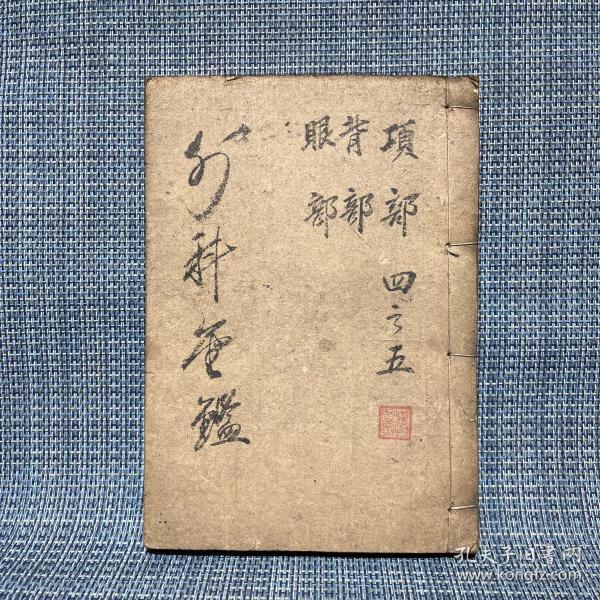 項部 四之五
背部
眼部
外科金鑑
孔夫子旧书网
www.kongfz.com